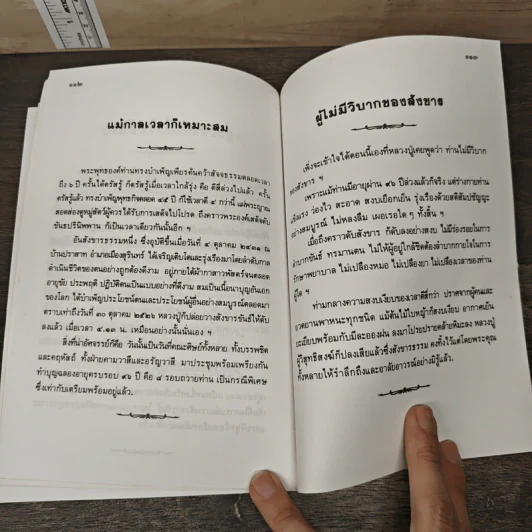 ๑๑๒
แม้กาลเวลาก็เหมาะสม
พระพุทธองค์ท่านทรงบำเพ็ญเพียรค้นคว้าสัจจธรรมตลอดเวลา
ถึง ๖ ปี ครั้นได้ตรัสรู้ ก็ตรัสรู้เมื่อเวลาใกล้รุ่ง คือ ตีสี่ล่วงไปแล้ว ครั้น
ตรัสรู้แล้ว ทรงบำเพ็ญพุทธกิจตลอด ๔๕ ปี ก็ใช้เวลาตี ๔ กว่านี้ แผ่พระญาณ
สอดส่องดูหมู่สัตว์ผู้ควรได้รับการเสด็จไปโปรด ถึงคราวพระองค์เสด็จดับ
ขันธปรินิพพาน ก็เป็นเวลาเดียวกันนั้นอีก ฯ
อันสังขารธรรมหนึ่ง ซึ่งอุบัติขึ้นมาวันที่ ๔ ตุลาคม ๒๔๓๑ ณ
บ้านปราสาท อำเภอเมืองสุรินทร์ ได้เจริญเติบโตและรุ่งเรืองมาโดยลำดับกาล
ดำเนินชีวิตของตนอย่างถูกต้องดีงาม อยู่ภายใต้ผ้ากาสาวพัสตร์จนตลอด
อายุขัย ประพฤติ ปฏิบัติตนเป็นแบบอย่างที่ดีงาม สมเป็นเนื้อนาบุญอันเอก
ของโลก ได้บำเพ็ญประโยชน์ตนและประโยชน์ผู้อื่นอย่างสมบูรณ์ตลอดมา
ตราบเท่าถึงวันที่ ๓๐ ตุลาคม ๒๕๒๖ หลวงปู่ก็ปล่อยวางสังขารขันธ์ให้ดับ
ลงแล้ว เมื่อเวลา ๔.๑๓ น. เหมือนอย่างนั้นนั่นเอง ฯ
สิ่งที่น่าอัศจรรย์ก็คือ วันนั้นเป็นวันที่คณะศิษย์ทั้งหลาย ทั้งบรรพชิต
และคฤหัสถ์ ทั้งฝ่ายคามวาสีและอรัญวาสี มาประชุมพร้อมเพรียงกัน
ทำบุญฉลองอายุครบรอบ ๙๖ ปี คือ ๘ รอบถวายท่าน เป็นกรณีพิเศษ
ซึ่งเท่ากับเตรียมพร้อมอยู่แล้ว.
๑๑๓
ผู้ไม่มีวิบากของสังขาร
เพิ่งจะเข้าใจได้ตอนนี้เองที่หลวงปู่เคยพูดว่า ท่านไม่มีวิบาก
ของสังขาร ฯ
เพราะแม้ท่านมีอายุผ่าน ๙๖ ปีล่วงแล้วก็จริง แต่ร่างกายท่าน
แข็งแรง ว่องไว สะอาด สงบเยือกเย็น รุ่งเรืองด้วยสติสัมปชัญญะ
อย่างสมบูรณ์ ไม่หลงลืม เผลอเรอใด ๆ ทั้งสิ้น ฯ
เมื่อถึงคราวดับสังขาร ก็ดับลงอย่างสงบ ไม่มีร่องรอยในการ
ลำบากขันธ์ ทรมานตน ไม่ให้ผู้อยู่ใกล้ชิดต้องลำบากกายใจในการ
รักษาพยาบาล ไม่เปลืองหมอ ไม่เปลืองยา ไม่เปลืองเวลาของท่าน
ผู้ใด ฯ
ท่ามกลางความสงบเงียบของเวลาตีสี่กว่า ปราศจากผู้คนและ
ยวดยานพาหนะทุกชนิด แม้ต้นไม้ใบหญ้าก็สงบเงียบ อากาศเย็น
ระเยียบพร้อมกับมีละอองฝน ลงมาโปรยปรายคล้ายหิมะลง หลวงปู่
ผู้วิสุทธิสงฆ์ก็ปลงเสียแล้วซึ่งสังขารธรรม คงทิ้งไว้แต่โดยพระคุณ
ทั้งหลายให้รำลึกถึงและอาลัยอาวรณ์อย่างมิรู้แล้ว.